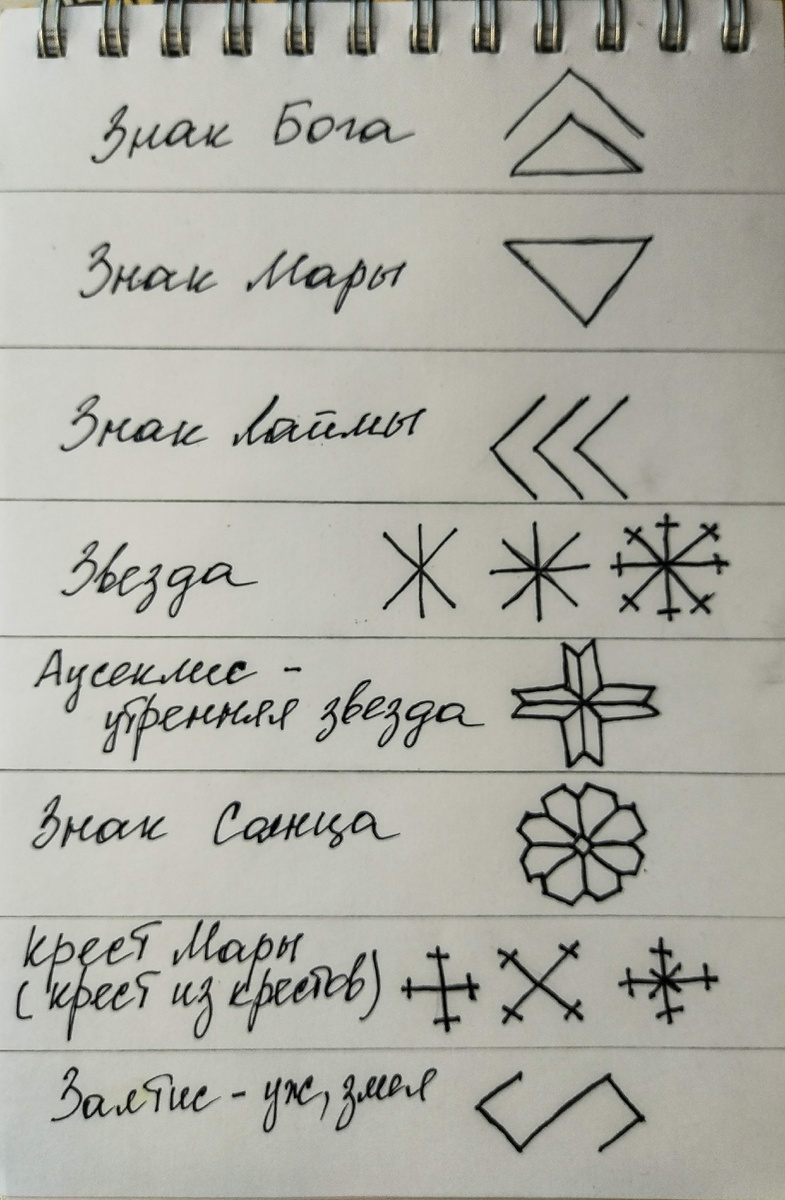 Знак Бога
Знак Мары
Знак Лаймы
Звезда
Аусеклис -
утренняя звезда
Знак Солнца
крест Мары
(крест из крестов)
Залтис - уж, змея